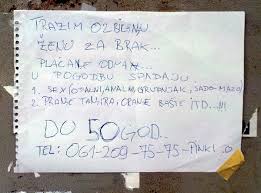 TRAŽIM OZBILJNU
ŽENU ZA BRAK...
PLAĆANJE ODMAH...
U POGODBU SPADAJU
1. SEX (ORALNI, ANALNI, GRUDNJAK, SADO-MAZO)
2. PRANJE TANJIRA, OPANJE BAŠTE ITD...!!!
DO 50 GOD.
TEL: 061-209-75-75-PINKI